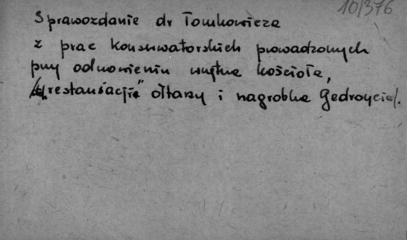 10/376
Sprawozdanie dr Tomkowicza
z prac konserwatorskich prowadzonych
przy odnowieniu wnętrza kościoła,
"restauracji" ołtarzy i nagrobka Gedroycia/.